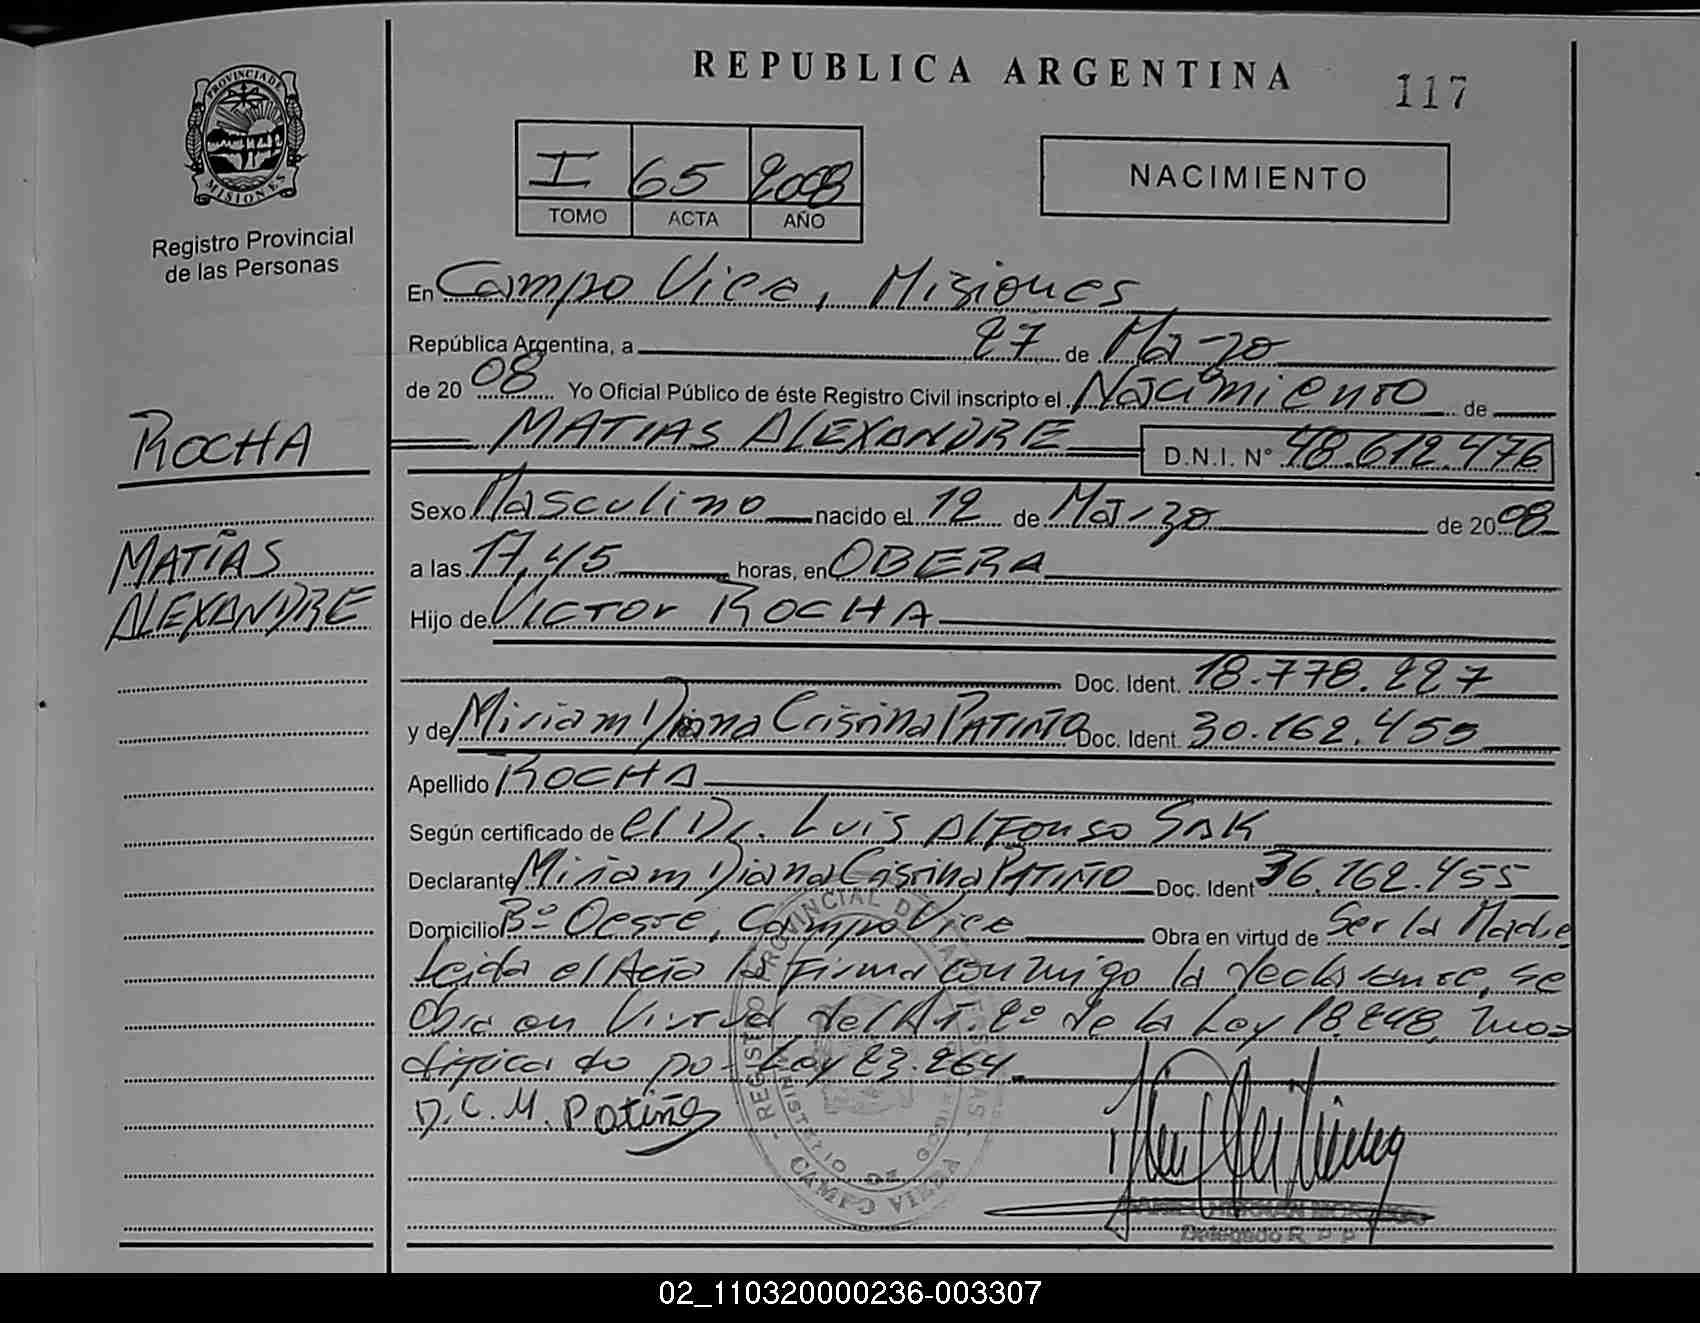 REPUBLICA ARGENTINA
117
PROVINCIA DE MISIONES
Registro Provincial
de las Personas
I 65 2008
TOMO ACTA AÑO
NACIMIENTO
En Campo Viera, Misiones
República Argentina, a 27 de Marzo
de 2008 Yo Oficial Público de éste Registro Civil inscripto el Nacimiento de
MATIAS ALEXANDRE D.N.I. N° 48.612.476
ROCHA
MATÍAS
ALEXANDRE
Sexo Masculino nacido el 12 de Marzo de 2008
a las 17,45 horas, en OBERA
Hijo de VICTOr ROCHA
Doc. Ident. 18.778.227
y de Miriam Diana Cristina PATIÑO Doc. Ident. 30.162.455
Apellido ROCHA
Según certificado de el Dr. Luis Alfonso
Declarante Miriam Diana Cristina PATIÑO Doc. Ident 36.162.455
Domicilio B° Oeste, Campo Viera Obra en virtud de Ser la Madre
Leida el Acta la Firma conmigo la declarante, se
Obra en Virtud del Art. 2° de la Ley 18.248, mo=
dificado por Ley 23.264
D.C.M. Patiño
REGISTRO PROVINCIAL DE LAS PERSONAS
MINISTERIO DE GOBIERNO
CAMPO VIERA
Delegado R. P. P.
02_110320000236-003307